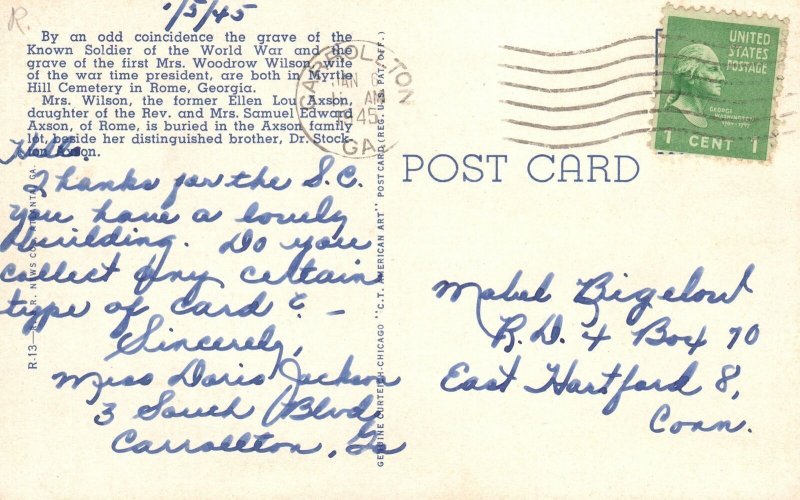 R.
1/5/45
By an odd coincidence the grave of the
Known Soldier of the World War and the
grave of the first Mrs. Woodrow Wilson, wife
of the war time president, are both in Myrtle
Hill Cemetery in Rome, Georgia.
Mrs. Wilson, the former Ellen Lou Axson,
daughter of the Rev. and Mrs. Samuel Edward
Axson, of Rome, is buried in the Axson family
lot, beside her distinguished brother, Dr. Stock-
ton Axson.
Hello.
Thanks for the S.C.
You have a lovely
building. Do you
collect any certain
type of card? –
Sincerely,
Miss Doris Jackson
3 South Blvd.
Carrollton, Ga
R-13—
R. NEWS CO., ATLANTA, GA.
GENUINE CURTEICH-CHICAGO "C.T. AMERICAN ART" POST CARD (REG. U.S. PAT. OFF.)
CARROLLTON
JAN 6
AM
1945
GA.
UNITED
STATES
POSTAGE
GEORGE
WASHINGTON
1789-1797
1 CENT 1
POST CARD
Mabel Bigelow
R.D. 4 Box 70
East Hartford 8,
Conn.